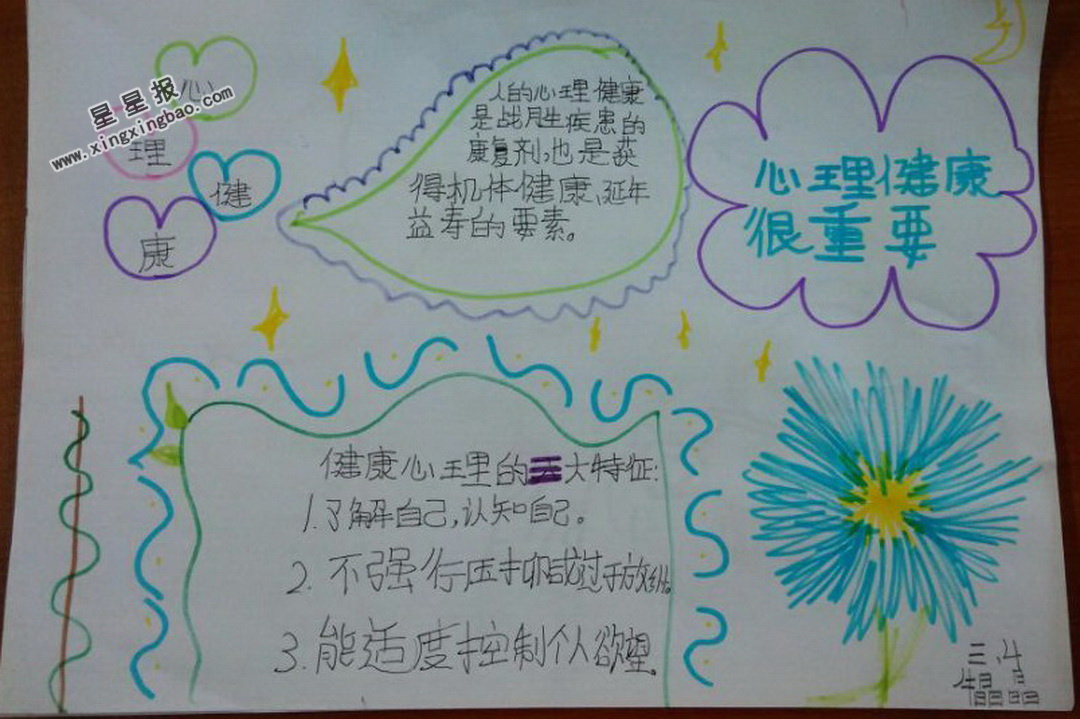 心
理
健
康
星星报
www.xingxingbao.com
人的心理健康
是战胜疾患的
康复剂,也是获
得机体健康、延年
益寿的要素。
心理健康
很重要
健康心理的三大特征:
1.了解自己,认知自己。
2.不强行压抑或过于放纵。
3.能适度控制个人欲望。
三.4